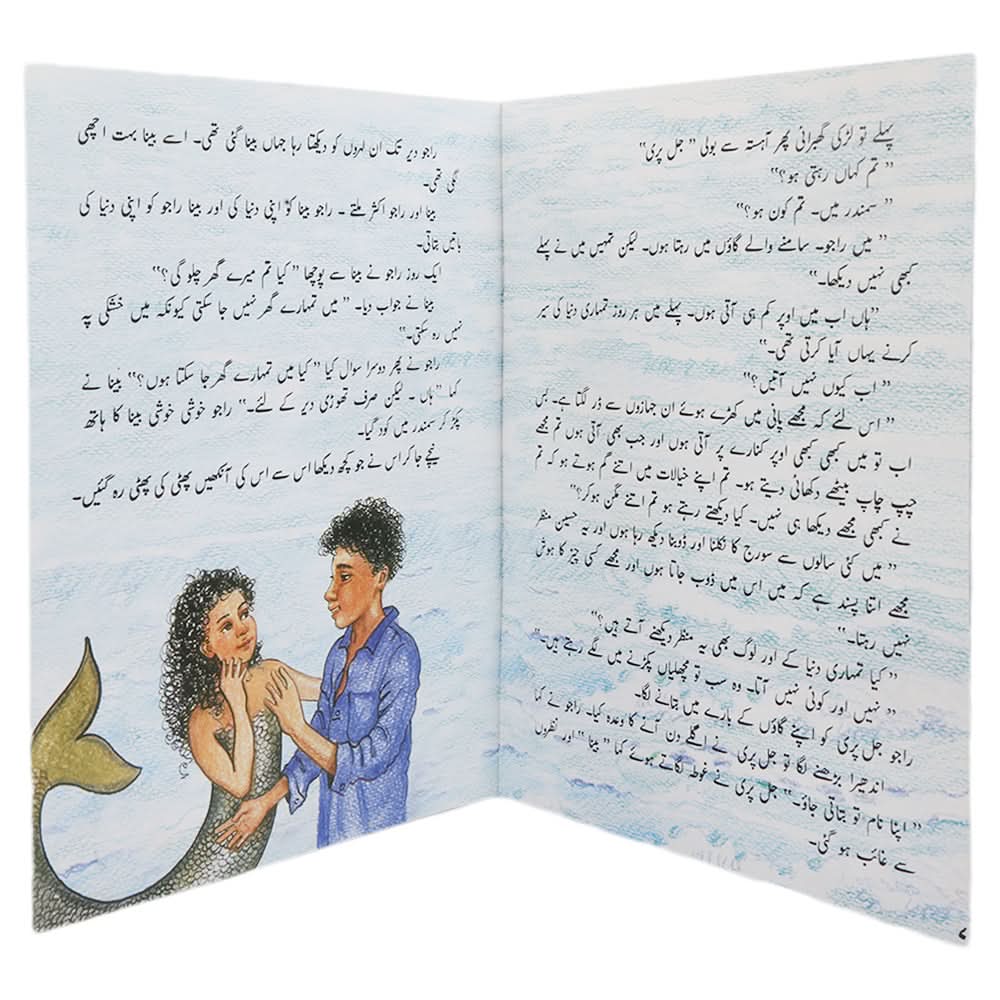 پہلے تو لڑکی گھبرائی پھر آہستہ سے بولی ”جل پری“
”تم کہاں رہتی ہو؟“
”سمندر میں۔ تم کون ہو؟“
”میں راجو۔ سامنے والے گاؤں میں رہتا ہوں۔ لیکن تمہیں میں نے پہلے
کبھی نہیں دیکھا۔“
”ہاں اب میں اوپر کم ہی آتی ہوں۔ پہلے میں ہر روز تمہاری دنیا کی سیر
کرنے یہاں آیا کرتی تھی۔“
”اب کیوں نہیں آتیں؟“
”اس لئے کہ مجھے پانی میں کھڑے ہوئے ان جہازوں سے ڈر لگتا ہے۔ بس
اب تو میں کبھی کبھی اوپر کنارے پر آتی ہوں اور جب بھی آتی ہوں تم مجھے
چپ چاپ بیٹھے دکھائی دیتے ہو۔ تم اپنے خیالات میں اتنے گم ہوتے ہو کہ تم
نے کبھی مجھے دیکھا ہی نہیں۔ کیا دیکھتے رہتے ہو تم اتنے مگن ہوکر؟“
”میں کئی سالوں سے سورج کا نکلنا اور ڈوبنا دیکھ رہا ہوں اور یہ حسین منظر
مجھے اتنا پسند ہے کہ میں اس میں ڈوب جاتا ہوں اور مجھے کسی چیز کا ہوش
نہیں رہتا۔“
”کیا تمہاری دنیا کے اور لوگ بھی یہ منظر دیکھنے آتے ہیں؟“
”نہیں اور کوئی نہیں آتا۔ وہ سب تو مچھلیاں پکڑنے میں لگے رہتے ہیں۔“
راجو جل پری کو اپنے گاؤں کے بارے میں بتانے لگا۔
اندھیرا بڑھنے لگا تو جل پری نے اگلے دن آنے کا وعدہ کیا۔ راجو نے کہا
”اپنا نام تو بتاتی جاؤ۔“ جل پری نے غوطہ لگاتے ہوئے کہا ”بینا“ اور نظروں
سے غائب ہو گئی۔
راجو دیر تک ان لہروں کو دیکھتا رہا جہاں بینا گئی تھی۔ اسے بینا بہت اچھی
لگی تھی۔
بینا اور راجو اکثر ملتے۔ راجو بینا کو اپنی دنیا کی اور بینا راجو کو اپنی دنیا کی
باتیں بتاتی۔
ایک روز راجو نے بینا سے پوچھا ”کیا تم میرے گھر چلو گی؟“
بینا نے جواب دیا۔ ”میں تمہارے گھر نہیں جا سکتی کیونکہ میں خشکی پہ
نہیں رہ سکتی۔“
راجو نے پھر دوسرا سوال کیا ”کیا میں تمہارے گھر جا سکتا ہوں؟“ بینا نے
کہا ”ہاں۔ لیکن صرف تھوڑی دیر کے لئے۔“ راجو خوشی خوشی بینا کا ہاتھ
پکڑ کر سمندر میں کود گیا۔
نیچے جا کر اس نے جو کچھ دیکھا اس سے اس کی آنکھیں پھٹی کی پھٹی رہ گئیں۔